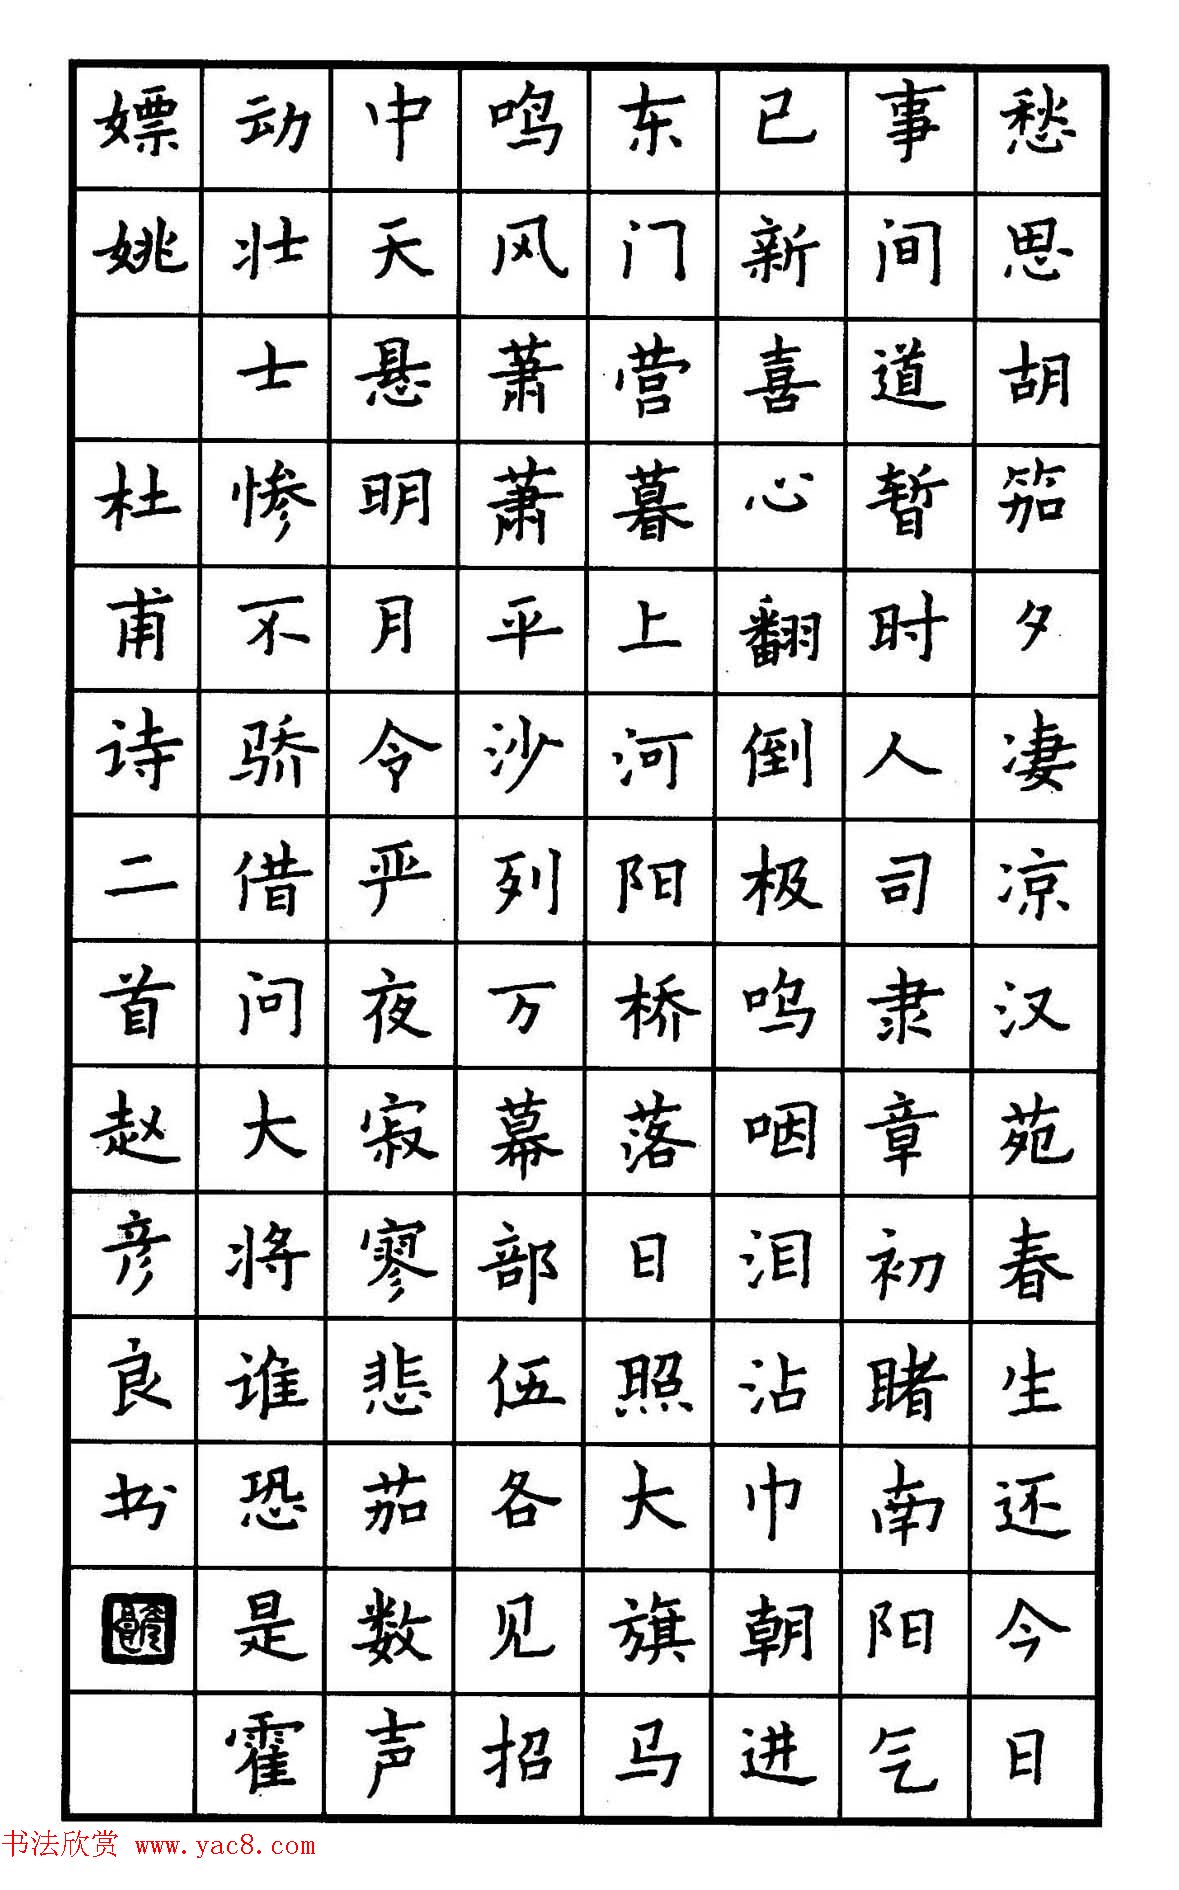 愁思胡笳夕凄凉汉苑春生还今日
事间道暂时人司隶章初睹南阳气
已新喜心翻倒极呜咽泪沾巾朝进
东门营暮上河阳桥落日照大旗马
鸣风萧萧平沙列万幕部伍各见招
中天悬明月令严夜寂寥悲茄数声
动壮士惨不骄借问大将谁恐是霍
嫖姚 杜甫诗二首赵彦良书
书法欣赏 www.yac8.com